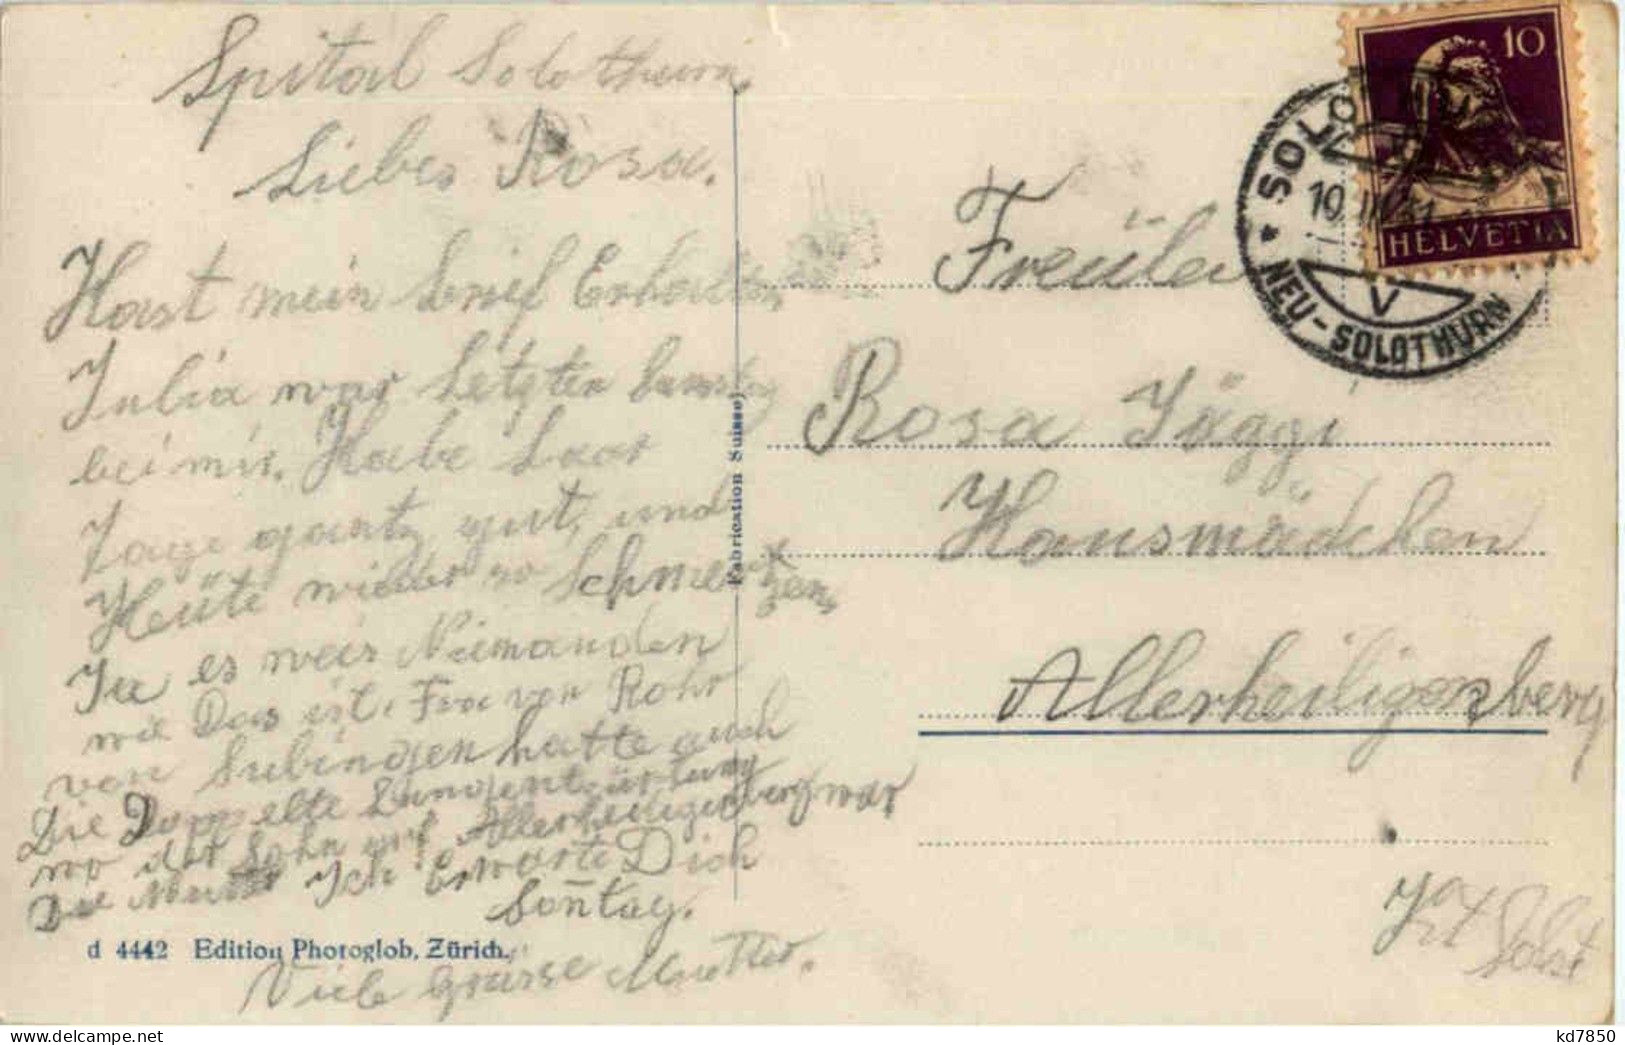 Spital Solothurn,
Liebes Rosa.
Hast mein brief Erhalten,
Julia war letzten Samstag
bei mir. Habe baar
Tage gantz gut, und
Heüte wieder so Schmertzen,
Ja es weis Niemanden
wie Das ist. Frau von Rohr
von Subingen hatte auch
Die Doppelte Lungentzürtung
wo der Sohn auf Allerheiligenberg war
Die Mutter Ich Erwarte Dich
Sontag.
Viele grüsse Mutter.
d 4442 Edition Photoglob, Zürich.
Fabrication Suisse)
10
HELVETIA
SOLO
10. III. 31
V
NEU-SOLOTHURN
Freülei
Rosa Jäggi
Hausmädchen
Allerheiligenberg
Kt Solot
kd7850